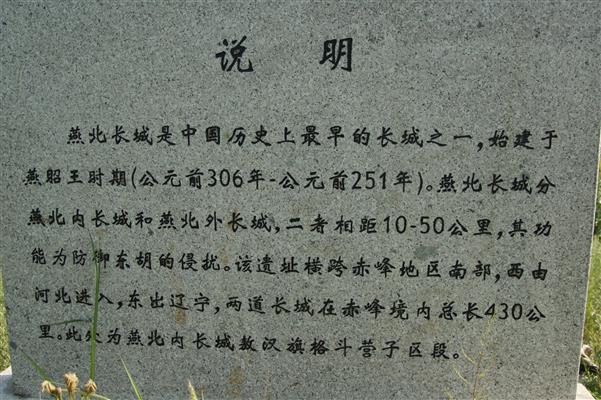 说 明
燕北长城是中国历史上最早的长城之一,始建于
燕昭王时期(公元前306年-公元前251年)。燕北长城分
燕北内长城和燕北外长城,二者相距10-50公里,其功
能为防御东胡的侵扰。该遗址横跨赤峰地区南部,西由
河北进入,东出辽宁,两道长城在赤峰境内总长430公
里。此处为燕北内长城敖汉旗格斗营子区段。